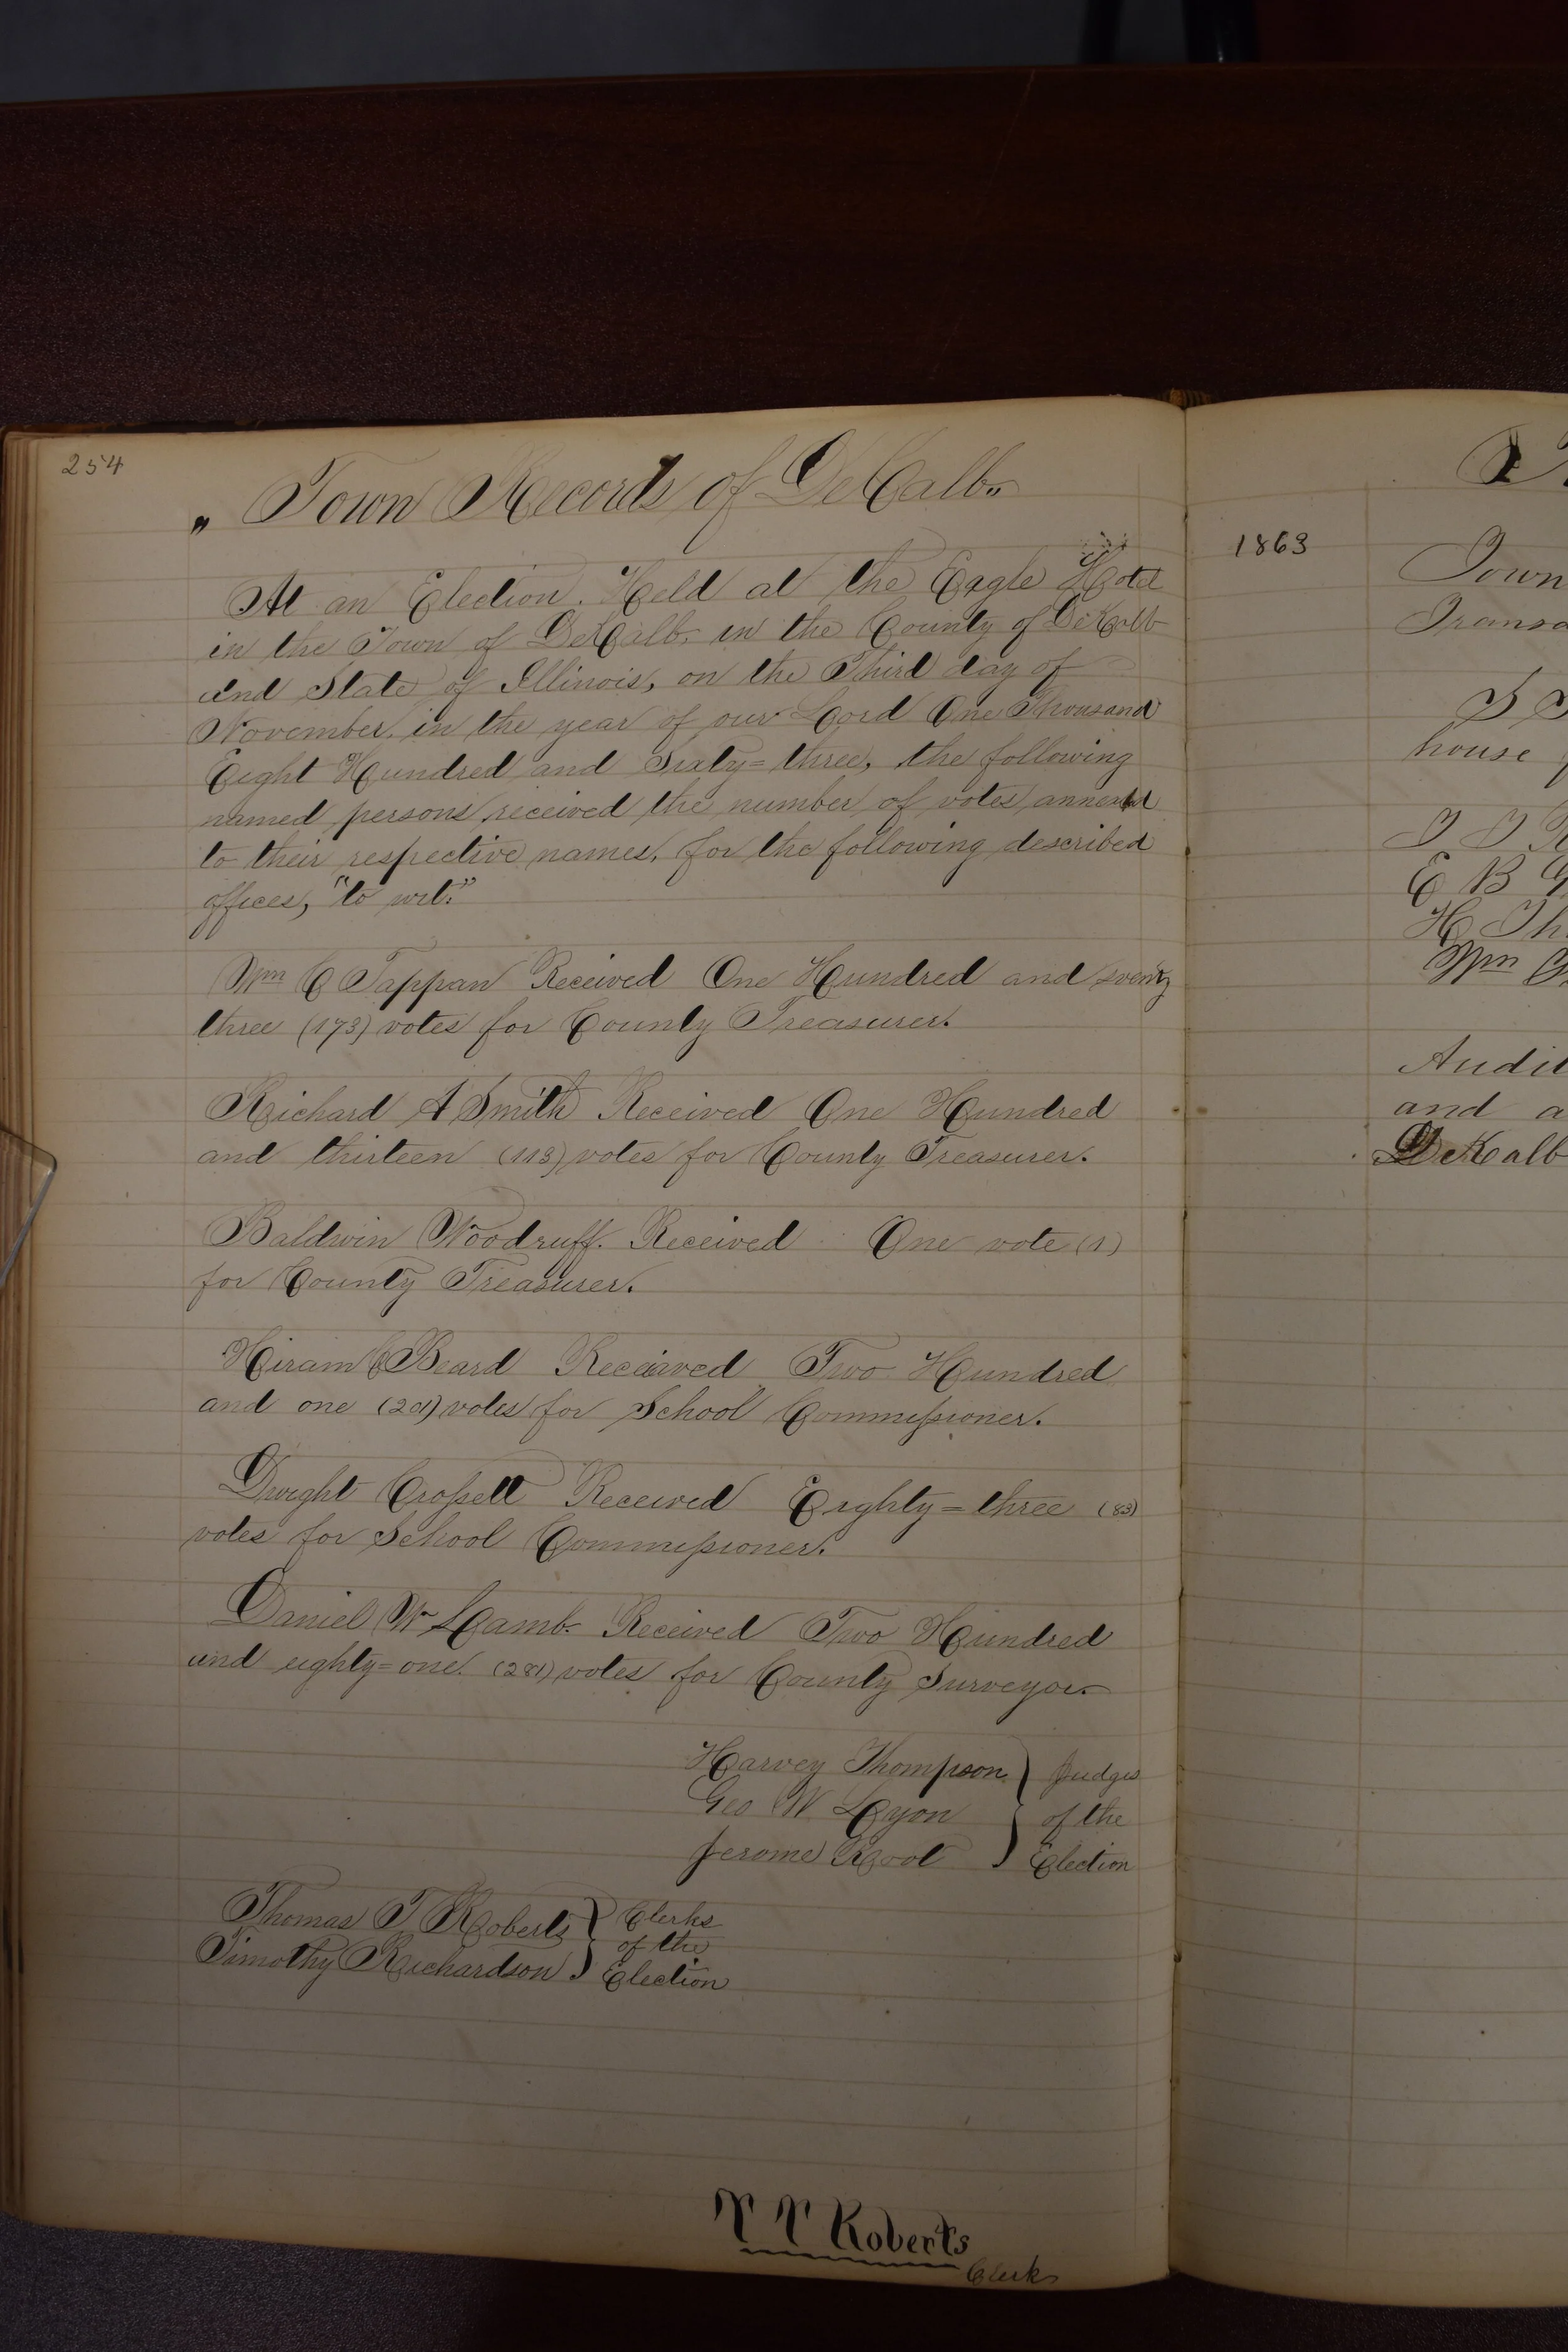 254
„ Town Records of DeCalb „
At an Election. Held at the Eagle Hotel
in the Town of DeCalb, in the County of DeKalb
and State of Illinois, on the Third day of
November, in the year of our Lord One Thousand
Eight Hundred and Sixty=three, the following
named persons received the number of votes annexed
to their respective names, for the following described
offices, "to wit:"
Wm C Tappan Received One Hundred and sventy
three (173) votes for County Treasurer.
Richard A Smith Received One Hundred
and thirteen (113) votes for County Treasurer.
Baldwin Woodruff. Received One vote (1)
for County Treasurer.
Hiram C Beard Received Two Hundred
and one (201) votes for School Commissioner.
Dwight Crossett Received Eighty=three (83)
votes for School Commissioner.
Daniel W Lamb. Received Two Hundred
and eighty=one. (281) votes for County Surveyor.
Harvey Thompson } Judges
Geo W Lyon } of the
Jerome Root } Election
Thomas T Roberts } Clerks
of the
Timothy Richardson } Election
T T Roberts
Clerk
1863
Town
house
E B
Wm
Audit
and a
DeKalb